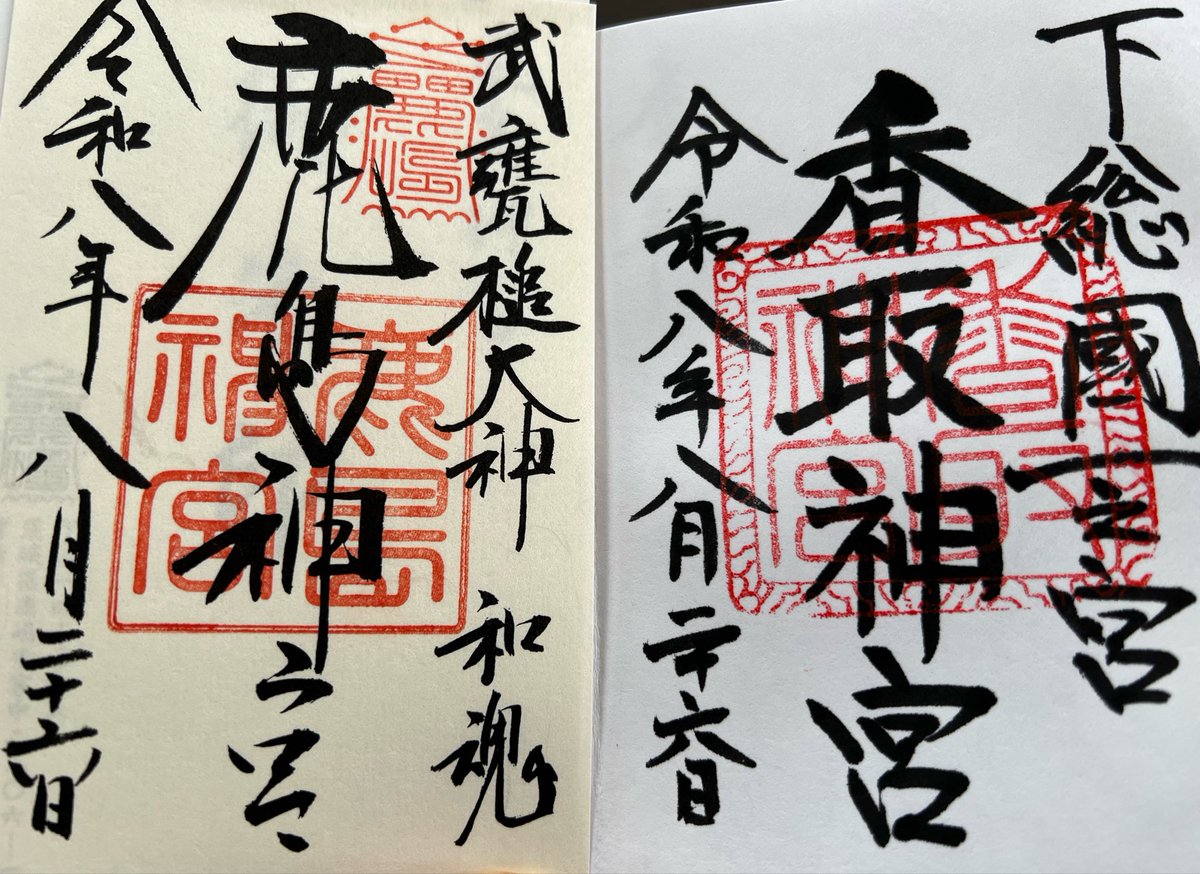 下総國一之宮
香取神宮
香取神宮
令和八年八月二十六日
武甕槌大神 和魂
鹿島神宮
鹿島神宮
令和八年八月二十六日